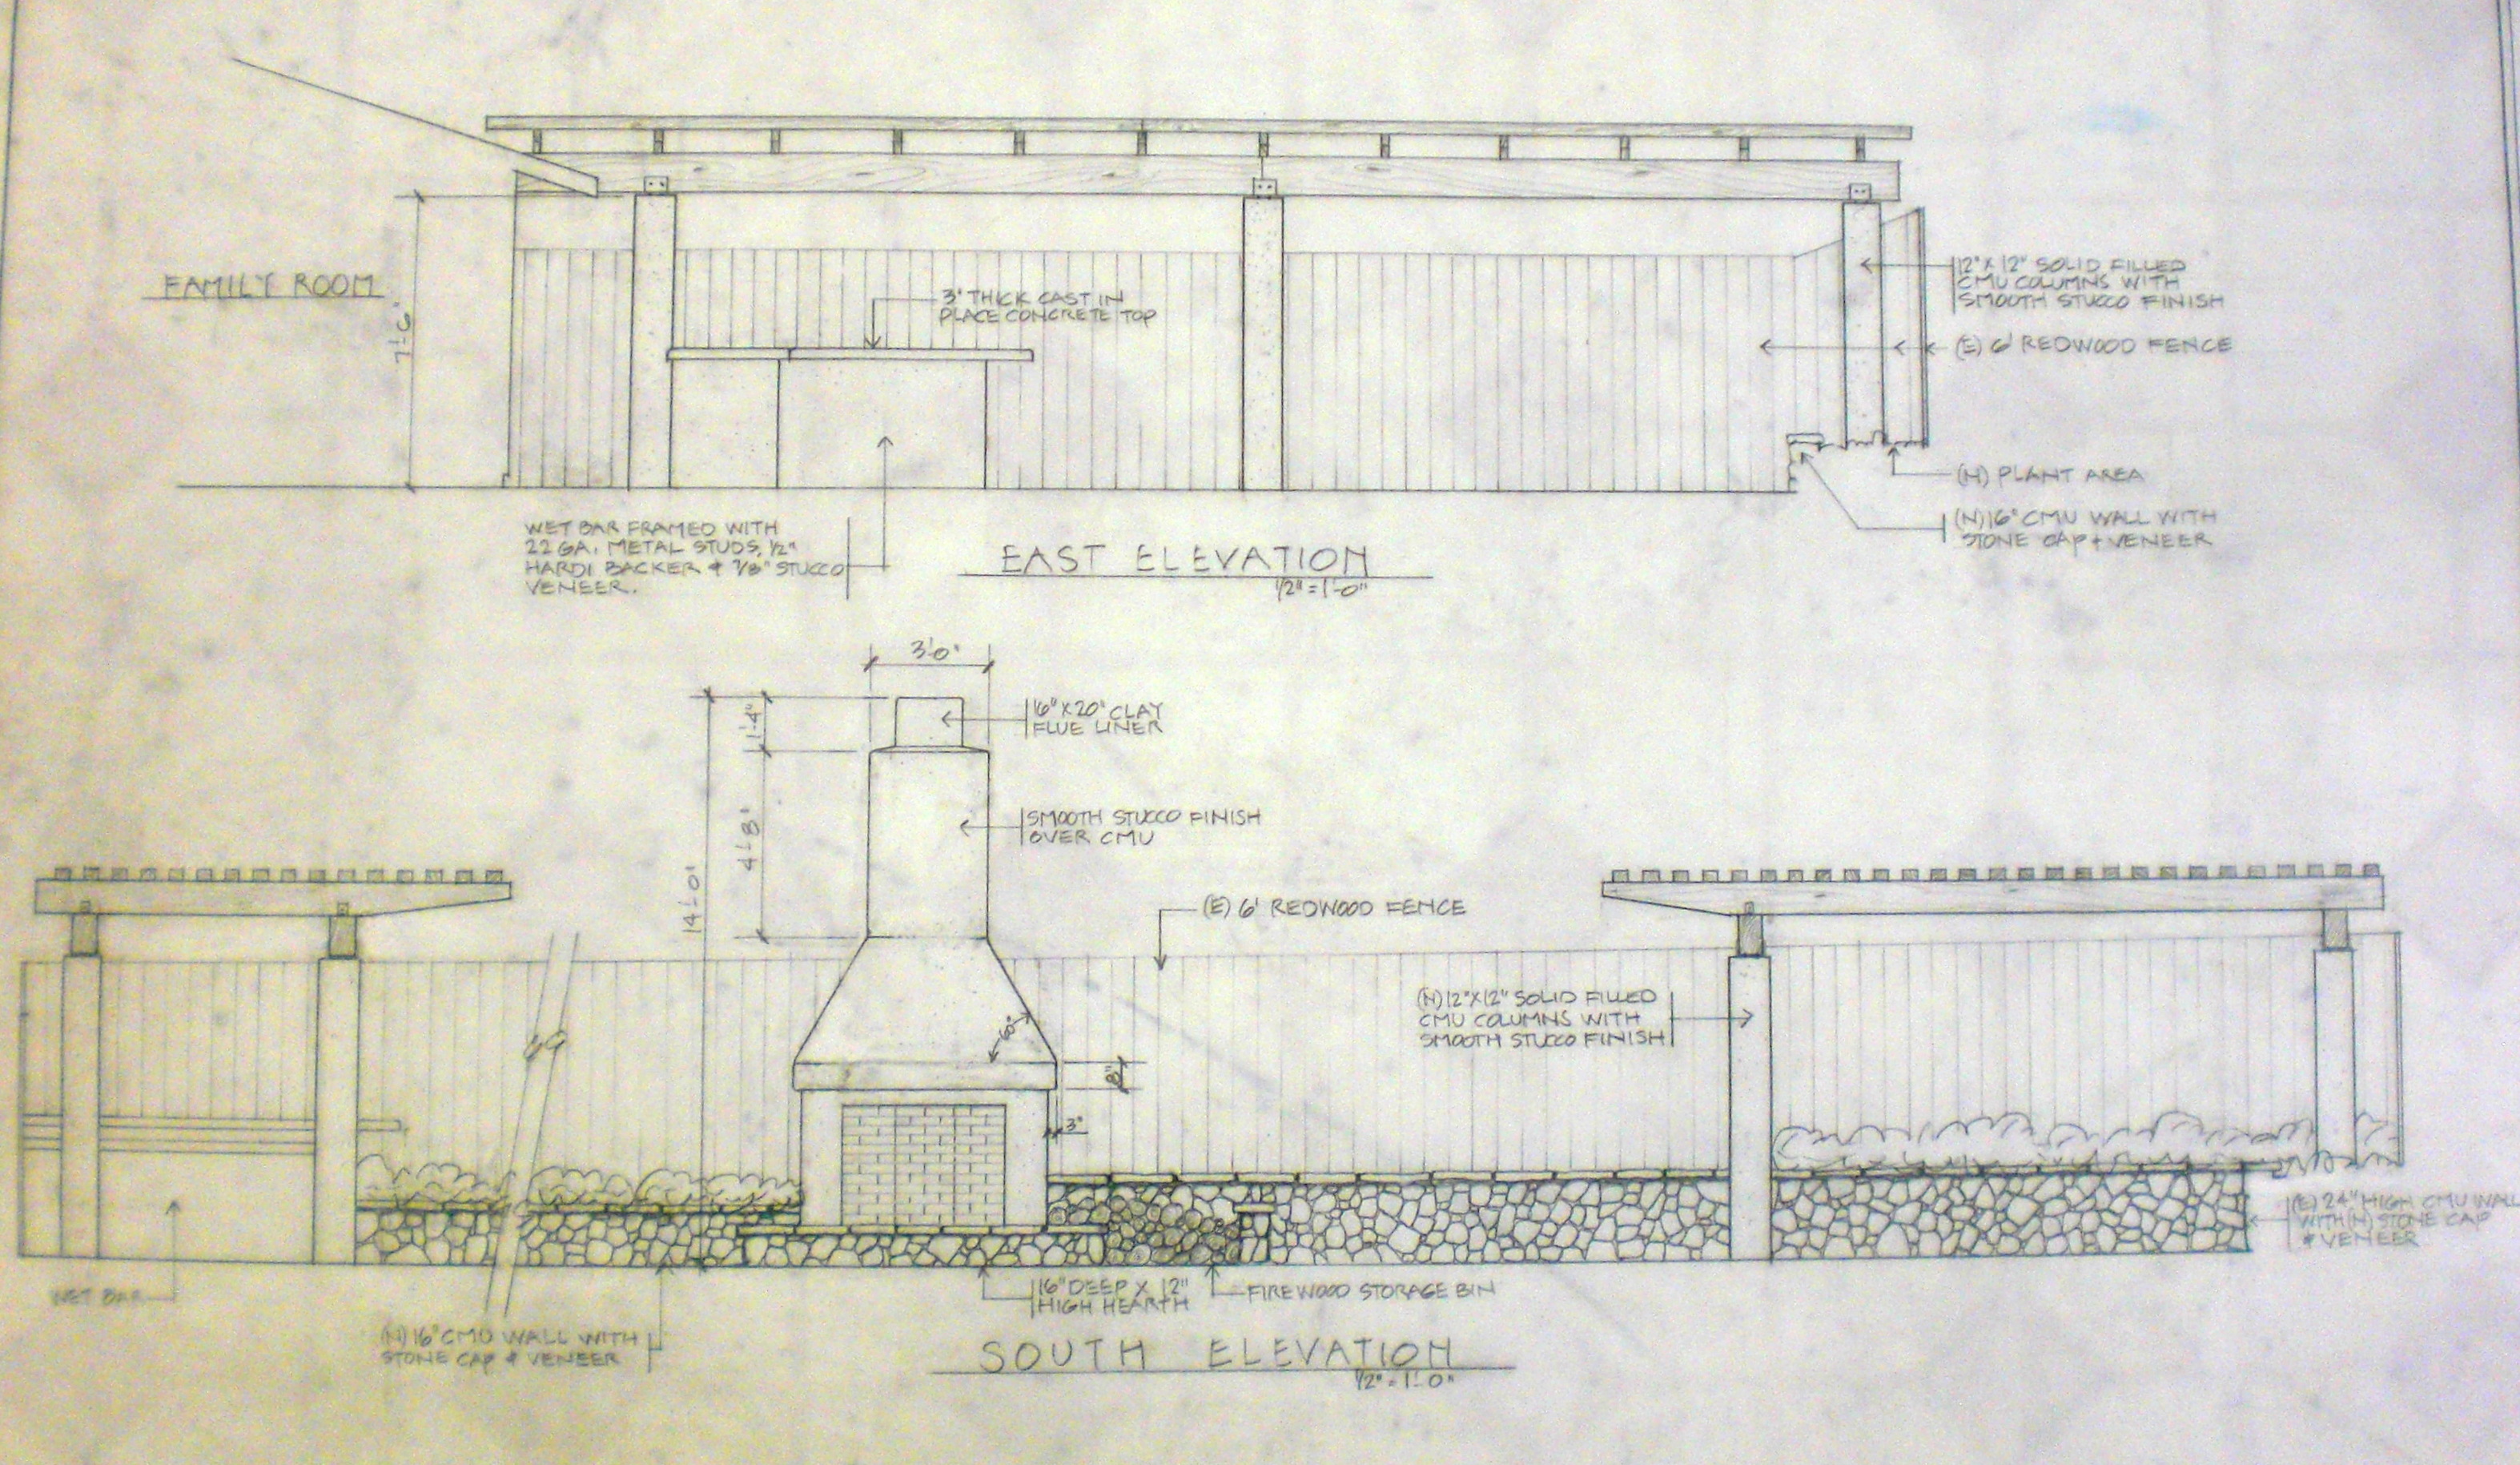 FAMILY ROOM
7'-6"
3" THICK CAST IN
PLACE CONCRETE TOP
12" X 12" SOLID FILLED
CMU COLUMNS WITH
SMOOTH STUCCO FINISH
(E) 6' REDWOOD FENCE
(N) PLANT AREA
(N) 16" CMU WALL WITH
STONE CAP + VENEER
WET BAR FRAMED WITH
22 GA. METAL STUDS, 1/2"
HARDI BACKER & 7/8" STUCCO
VENEER.
EAST ELEVATION
1/2" = 1'-0"
3'0"
1'-4"
16" X 20" CLAY
FLUE LINER
4'-8"
SMOOTH STUCCO FINISH
OVER CMU
14'-0"
(E) 6' REDWOOD FENCE
(N) 12" X 12" SOLID FILLED
CMU COLUMNS WITH
SMOOTH STUCCO FINISH
60°
8"
3"
(E) 24" HIGH CMU WALL
WITH (N) STONE CAP
& VENEER
WET BAR
16" DEEP X 12"
HIGH HEARTH
FIREWOOD STORAGE BIN
(N) 16" CMU WALL WITH
STONE CAP & VENEER
SOUTH ELEVATION
1/2" = 1'-0"